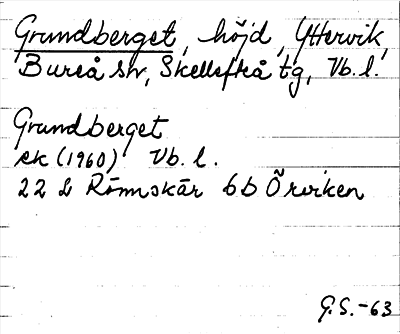 Grundberget, höjd, Yttervik,
Bureå sn, Skellefteå tg, Vb. l.
Grundberget
ek (1960) Vb. l.
22 L Römskär 6b Örviken
G.S. -63